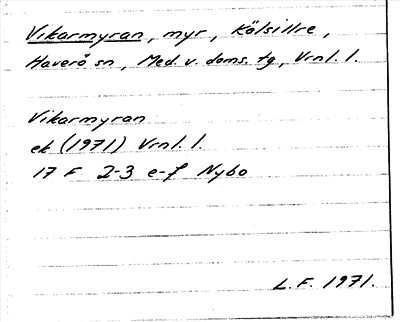 Vikarmyran, myr, Kölsillre,
Haverö sn, Med. v. doms. tg, Vrnl. l.
Vikarmyran
ek (1971) Vrnl. l.
17 F 2-3 e-f Nybo
L. F. 1971.